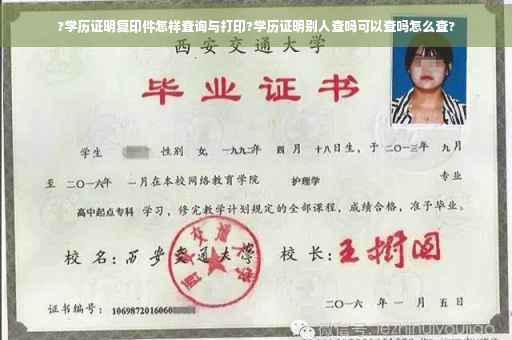 ?学历证明复印件怎样查询与打印?学历证明别人查吗可以查吗怎么查?
西安交通大学
毕业证书
学生 性别 女, 一九九二年 四月 十八日生, 于二〇一三年 九月
至 二〇一六年 一月在本校网络教育学院 护理学 专业
高中起点专科 学习, 修完教学计划规定的全部课程, 成绩合格, 准予毕业。
校名: 西安交通大学 校长: 王树国
西安交通大学
证书编号: 1069872016060
二〇一六 年 一 月 五 日
微信号: jezhihuiyoujiao